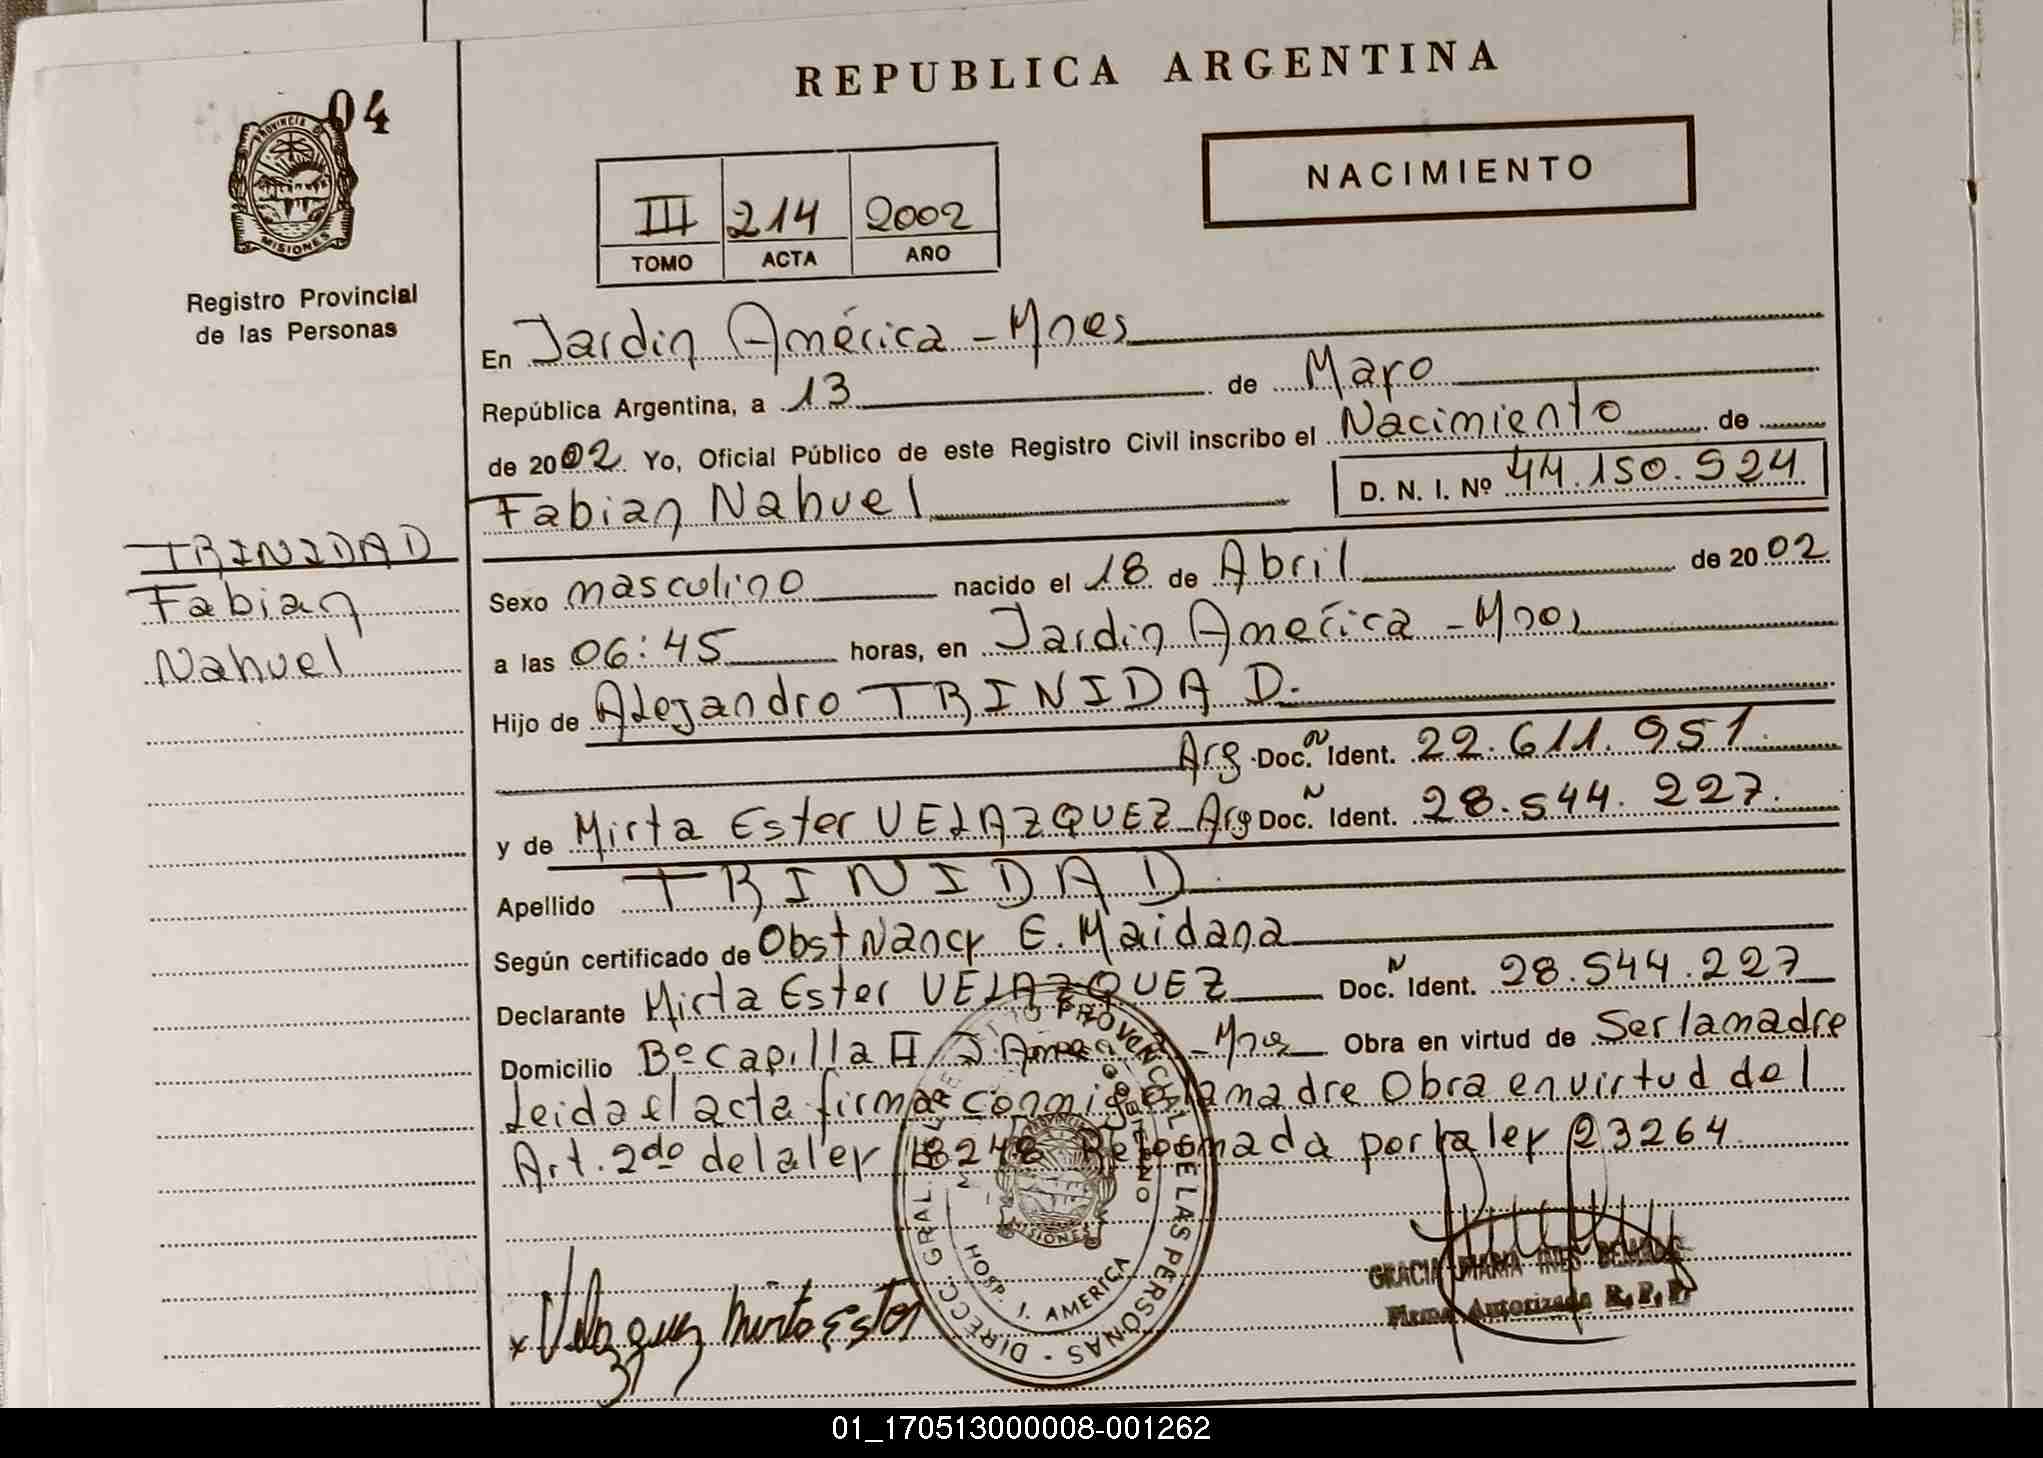 REPUBLICA ARGENTINA
04
PROVINCIA DE
MISIONES
NACIMIENTO
III 214 2002
TOMO ACTA AÑO
Registro Provincial
de las Personas
En Jardin América - Mnes
República Argentina, a 13 de Mayo
de 2002 Yo, Oficial Público de este Registro Civil inscribo el Nacimiento de
Fabian Nahuel D. N. I. Nº 44.150.924
TRINIDAD
Fabian
Nahuel
Sexo masculino nacido el 18 de Abril de 2002
a las 06:45 horas, en Jardin América - Mnes
Hijo de Alejandro TRINIDAD.
Arg Doc. N Ident. 22.611.951.
y de Mirta Ester VELAZQUEZ Arg Doc. N Ident. 28.544.227.
Apellido TRINIDAD
Según certificado de Obst Nancy E. Maidana
Declarante Mirta Ester VELAZQUEZ Doc. N Ident. 28.544.227
Domicilio Bº Capilla II J. - Mnes Obra en virtud de Ser la madre
Leida el acta firma conmigo la madre Obra en virtud del
Art. 2do de la ley 18248 Reformada por la ley 23264
DIRECC. GRAL. PROVINCIAL DE LAS PERSONAS
HOSP. J. AMERICA
MISIONES
x Velazquez Mirta Ester
GRACIA MARIA INES
Firma Autorizada R. P. P.
01_170513000008-001262